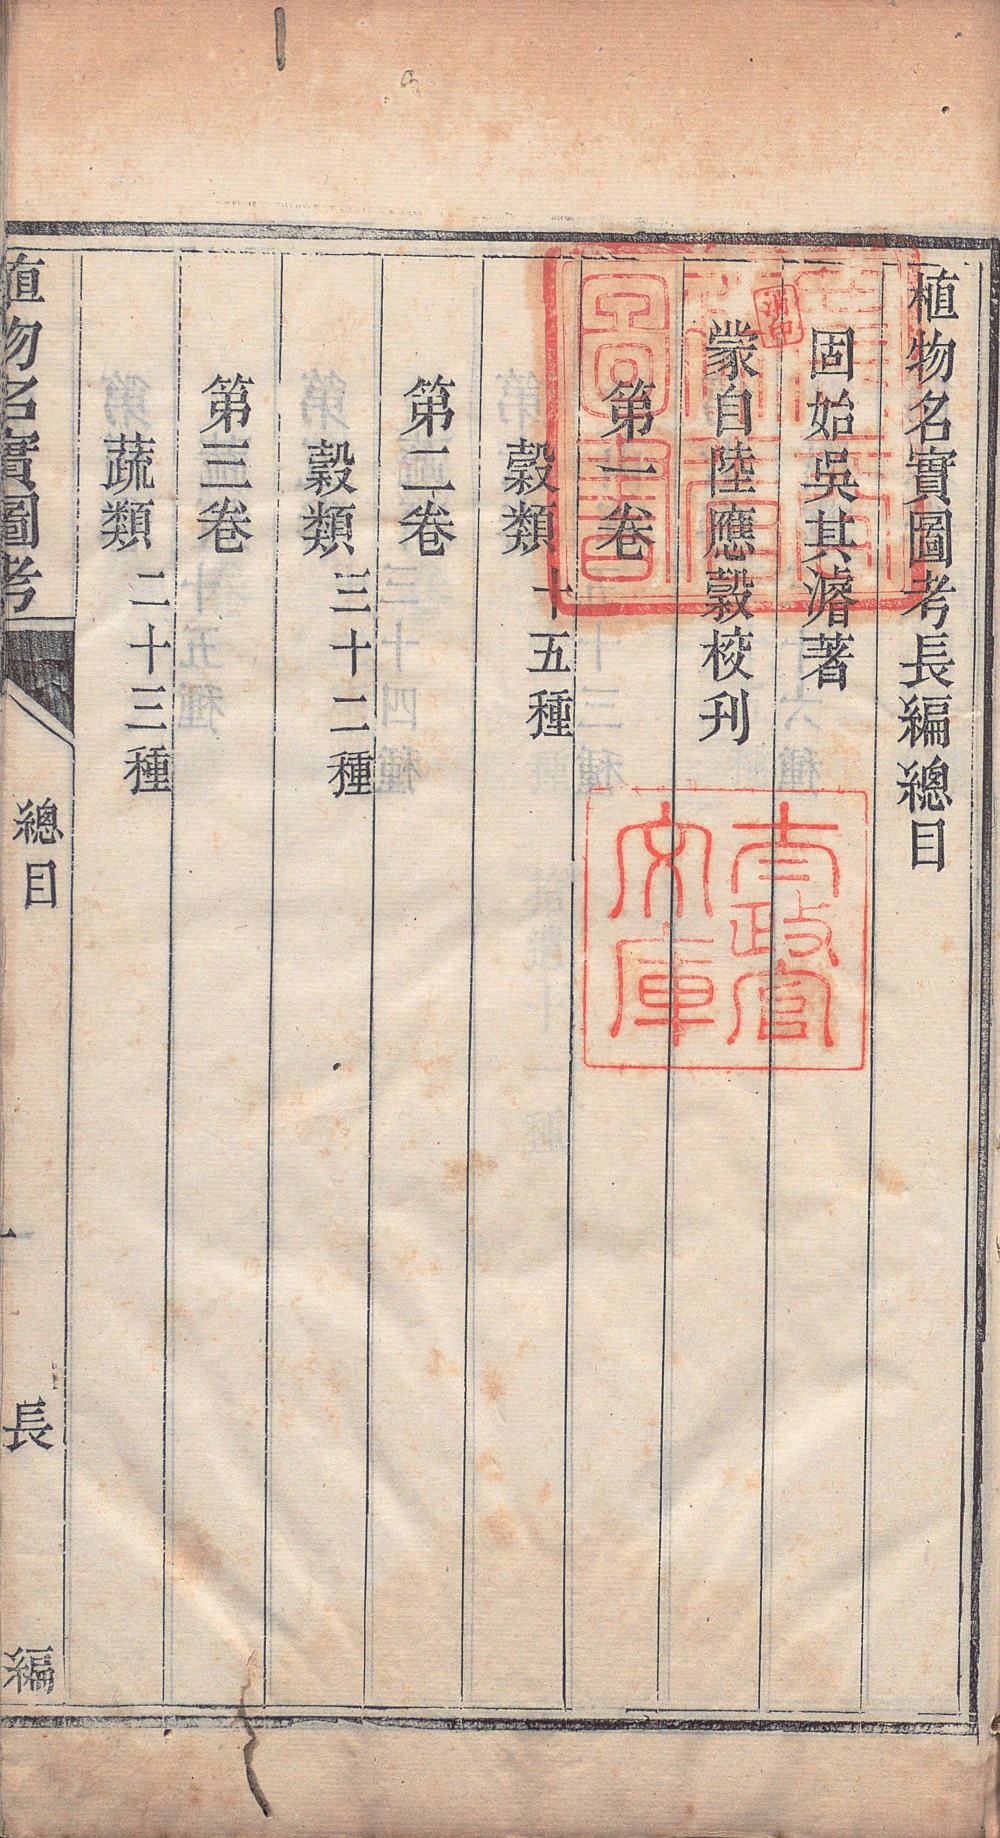 植物名實圖考長編總目
固始吳其濬著
蒙自陸應穀校刊
第一卷
穀類十五種
第二卷
穀類三十二種
第三卷
蔬類二十三種
植物名實圖考
總目
一
長編
圖書
消印
太政官
文庫